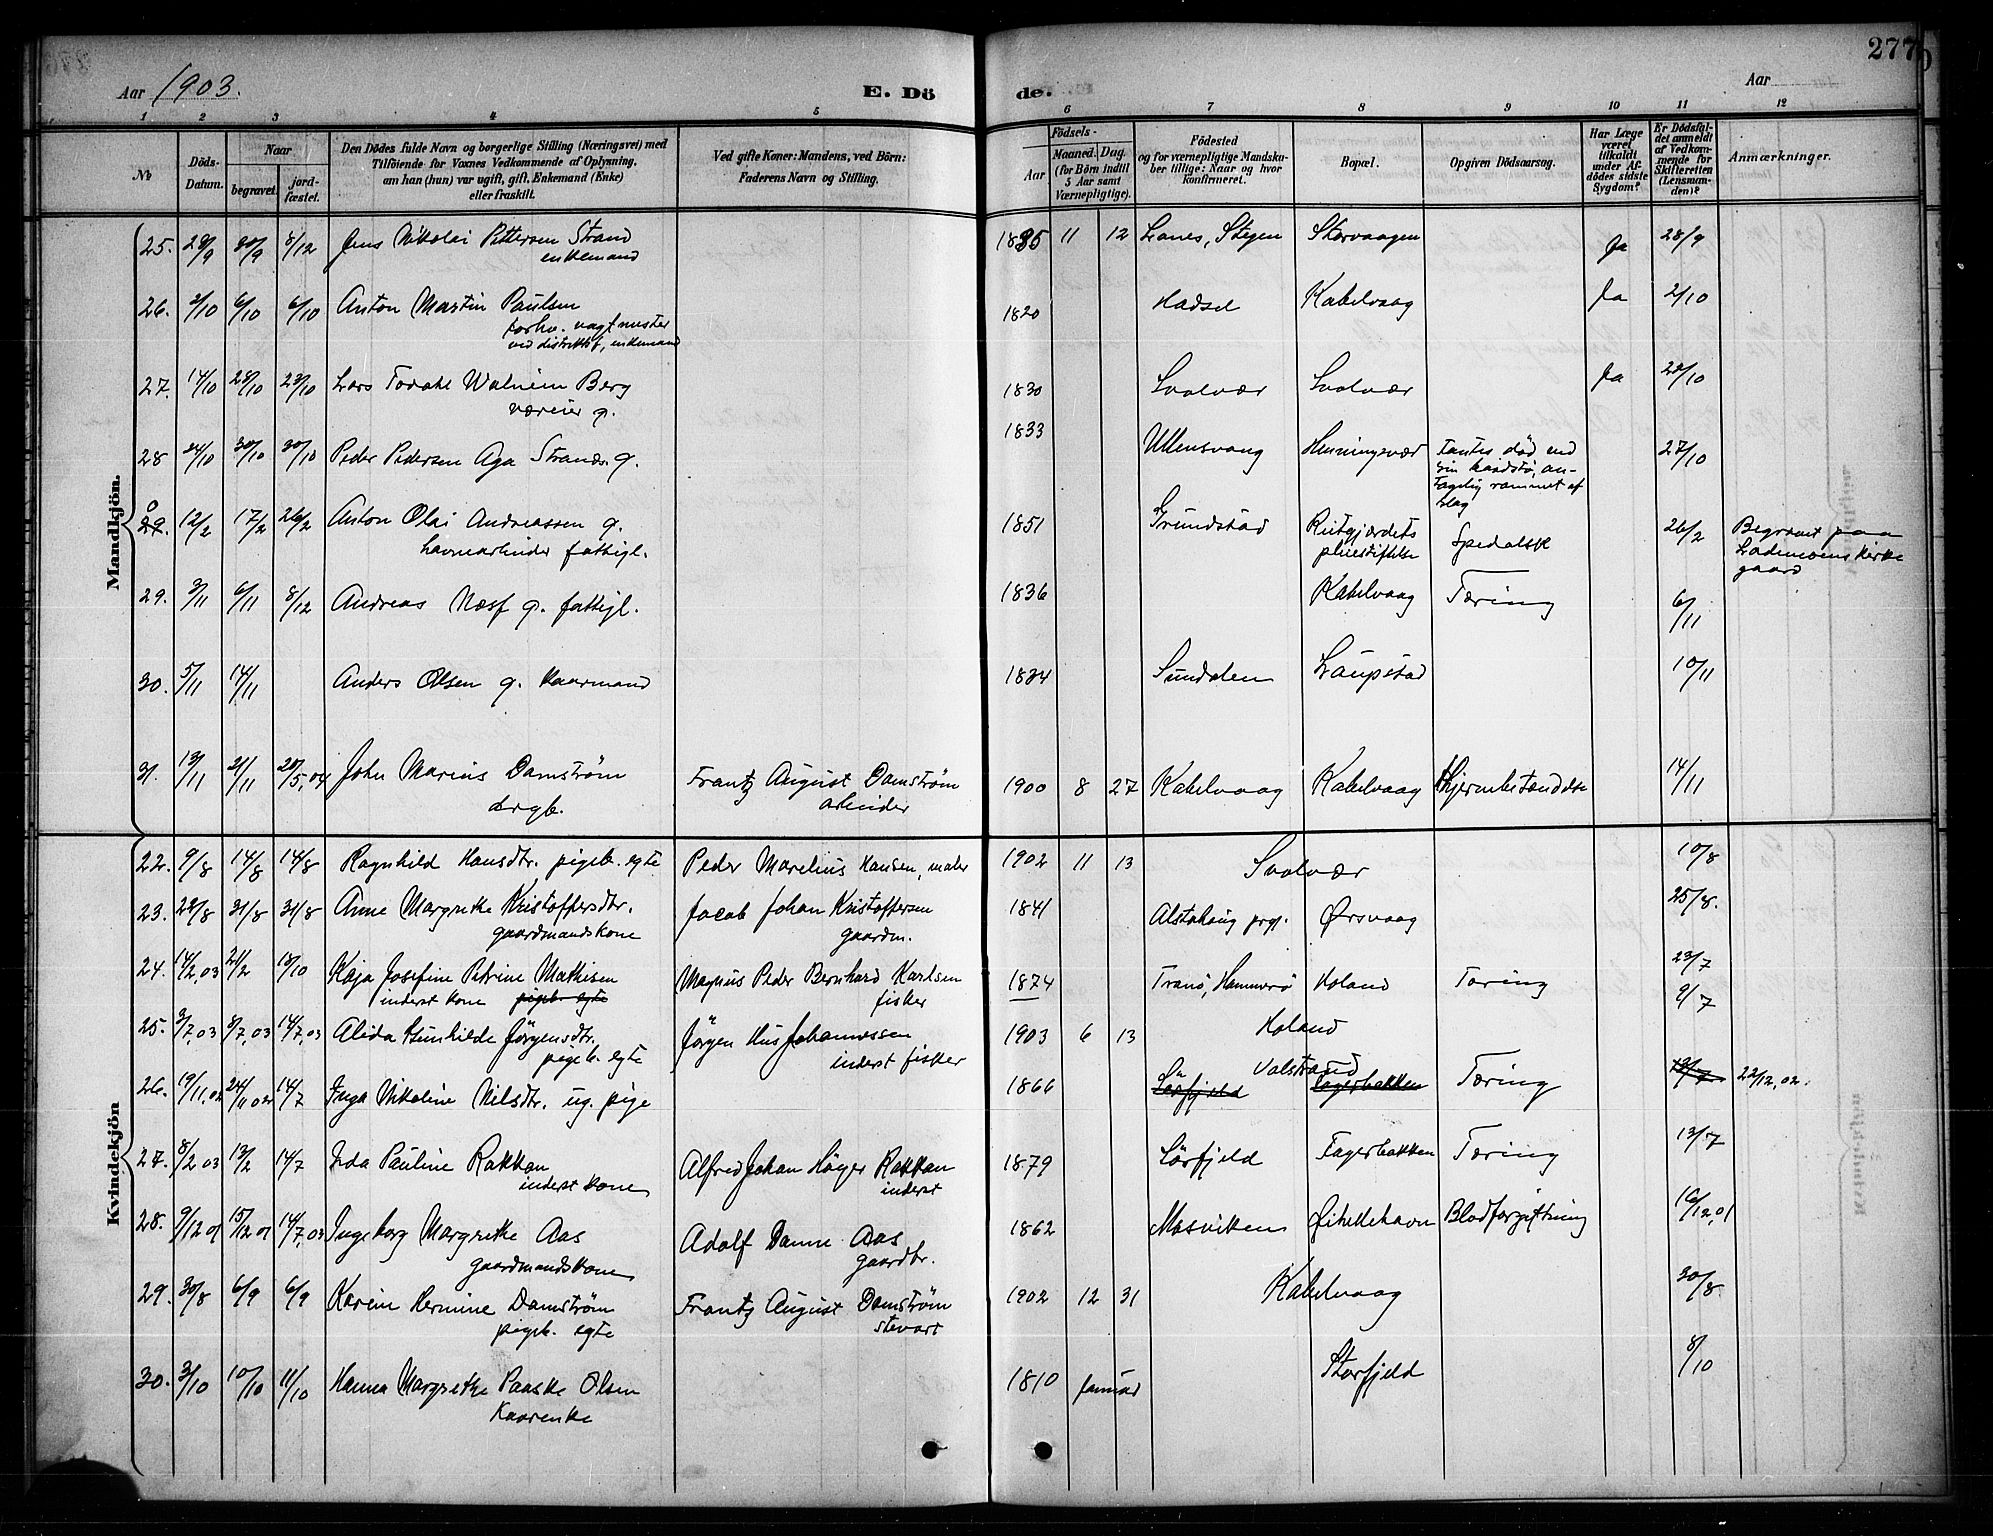 277
Aar 1903.
E. Dö
de.
Aar
1 2 3 4 5
6 7 8 9 10 11 12
No
Döds-Datum.
Naar
begravet.
jord-fæstet.
Den Dödes fulde Navn og borgerlige Stilling (Næringsvei) med
Tilföiende for Voxnes Vedkommende af Oplysning,
om han (hun) var ugift, gift, Enkemand (Enke)
eller fraskilt.
Ved gifte Koner: Mandens, ved Börn:
Faderens Navn og Stilling.
Födsels-
Aar
Maaned. Dag.
(for Börn indtil
5 Aar samt
Værnepligtige).
Födested
og for værnepligtige Mandska-
ber tillige: Naar og hvor
konfirmeret.
Bopæl.
Opgiven Dödsaarsag.
Har Læge
været
tilkaldt
under Af-
dödes sidste
Sygdom?
Er Dödsfal-
det anmeldt
af Vedkom-
mende for
Skifteretten
(Lensman-
den)?
Anmærkninger.
Mandkjön.
25. 28/9 30/9 8/12 Jens Nikolai Pettersen Strand 1835 11 12 Lanes, Stegen Storvaagen Ja 28/9
enkemand
26. 2/10 6/10 6/10 Anton Martin Paulsen 1820 Hadsel Kabelvaag Ja 2/10
forhv. vagtmester
ved distriktsf, enkemand
27. 14/10 23/10 23/10 Lars Berg 1830 Svolvær Svolvær Ja 20/10
væreier g.
28 24/10 30/10 30/10 Peder Pedersen Aga Strands. g. 1833 Ullensvang Henningsvær Fantes död ved 27/10
sin baadstö, an-
tagelig rammet af
slag
29. 12/2 17/2 26/2 Anton Olai Andreassen g. 1851 Grundstad Reitgjærdets Spedalsk 26/2 Begravet paa
havnearbeider fattigl. pleiestiftelse Lademoens Kirke
gaard
29. 3/11 6/11 8/12 Andreas Næss g. fattigl. 1836 Kabelvaag Tæring 6/11
30. 5/11 14/11 Anders Olsen g. kaarmand 1834 Sundalen Laupstad 10/11
31. 13/11 21/11 20/5,04 John Marius Damström Frantz August Damström 1900 8 27 Kabelvaag Kabelvaag Hjernebetændelse 14/11
drgb. arbeider
Kvindekjön
22. 9/8 14/8 14/8 Ragnhild Hansdtr. pigeb. egte Peder Marelius Hansen, maler 1902 11 13 Svolvær 10/8
23. 22/8 31/8 31/8 Anne Margrethe Kristoffersdtr. Jacob Johan Kristoffersen 1841 Alstahaug prgj. Ørsvaag 25/8.
gaardmandskone gaardm.
24. 14/2,03 21/2 13/10 Kaja Josefine Petrine Mathisen Magnus Peder Bernhard Karlsen 1874 Tranö, Hammerö Holand Tæring 23/7
inderst kone pigeb. egte fisker 9/7
25. 3/7,03 8/7,03 14/7,03 Alida Gunhilde Jörgensdtr. Jörgen Hus Johannessen 1903 6 13 Holand
pigeb. egte inderst fisker
26. 19/11,02 24/11 02 14/7 Inga Nikoline Nilsdtr. ug. pige 1866 Valstrand Lörfjeld Fagerbakken Tæring 13/7 22/12,02.
27. 8/2 03 13/2 14/7 Ida Pauline Rakkan Alfred Johan Höyer Rakkan 1879 Lörfjeld Fagerbakken Tæring 13/7
inderst kone inderst
28. 9/12 01 15/12 01 14/7,03 Ingeborg Margrethe Aas Adolf Danne Aas 1862 Mosvikken Blodforgiftning 16/12,01
gaardmandskone gaardbr.
29. 30/8 6/9 6/9 Karin Hermine Damström Frantz August Damström 1902 12 31 Kabelvaag 30/8
pigeb. egte stevart
30. 3/10 10/10 11/10 Hanna Margrethe Paaske Olsen 1810 januar Storfjeld 8/10
Kaarenke